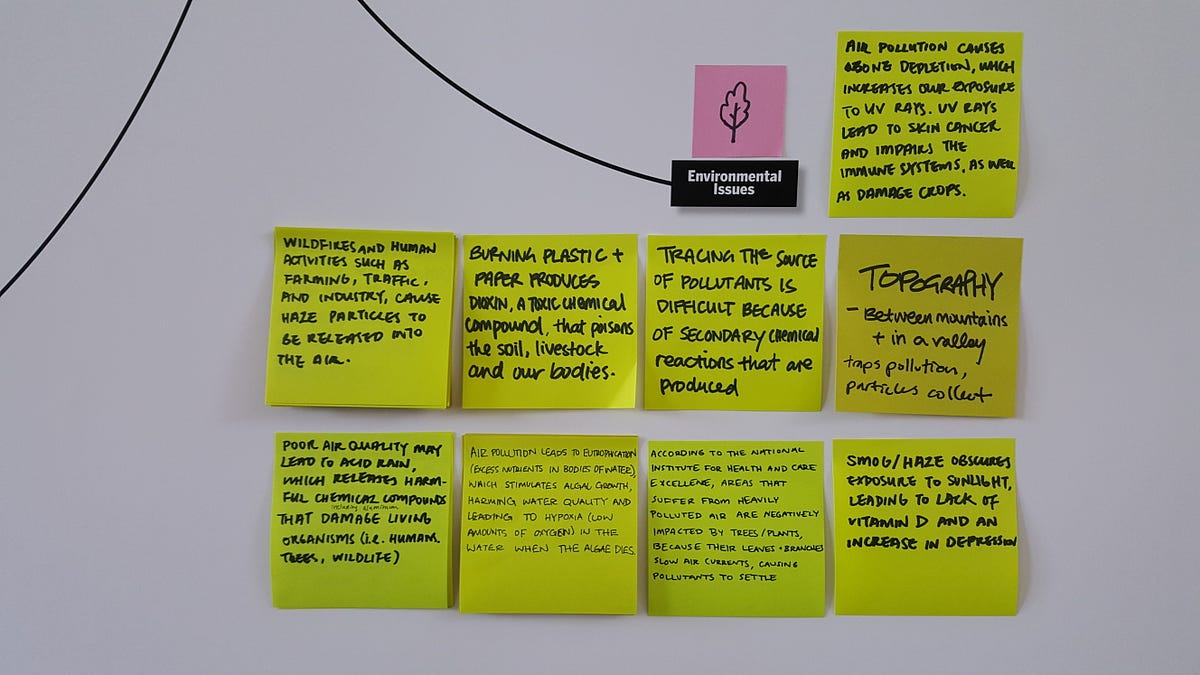 Environmental
Issues
AIR POLLUTION CAUSES
OZONE DEPLETION, WHICH
INCREASES OUR EXPOSURE
TO UV RAYS. UV RAYS
LEAD TO SKIN CANCER
AND IMPAIRS THE
IMMUNE SYSTEMS, AS WELL
AS DAMAGE CROPS.
WILDFIRES AND HUMAN
ACTIVITIES SUCH AS
FARMING, TRAFFIC,
AND INDUSTRY, CAUSE
HAZE PARTICLES TO
BE RELEASED INTO
THE AIR.
BURNING PLASTIC +
PAPER PRODUCES
DIOXIN, A TOXIC CHEMICAL
COMPOUND, that poisons
the soil, livestock
and our bodies.
TRACING THE SOURCE
OF POLLUTANTS IS
DIFFICULT BECAUSE
OF SECONDARY CHEMICAL
reactions that are
produced
TOPOGRAPHY
- Between mountains
+ in a valley
traps pollution,
particles collect
POOR AIR QUALITY MAY
LEAD TO ACID RAIN,
WHICH RELEASES HARM-
FUL CHEMICAL COMPOUNDS
including aluminium
THAT DAMAGE LIVING
ORGANISMS (i.e. HUMAN,
TREES, WILDLIFE)
AIR POLLUTION LEADS TO EUTROPHICATION
(EXCESS NUTRIENTS IN BODIES OF WATER),
WHICH STIMULATES ALGAL GROWTH,
HARMING WATER QUALITY AND
LEADING TO HYPOXIA (LOW
AMOUNTS OF OXYGEN) IN THE
WATER WHEN THE ALGAE DIES.
ACCORDING TO THE NATIONAL
INSTITUTE FOR HEALTH AND CARE
EXCELLENE, AREAS THAT
SUFFER FROM HEAVILY
POLLUTED AIR ARE NEGATIVELY
IMPACTED BY TREES/PLANTS,
BECAUSE THEIR LEAVES + BRANCHES
SLOW AIR CURRENTS, CAUSING
POLLUTANTS TO SETTLE
SMOG/HAZE OBSCURES
EXPOSURE TO SUNLIGHT,
LEADING TO LACK OF
VITAMIN D AND AN
INCREASE IN DEPRESSION